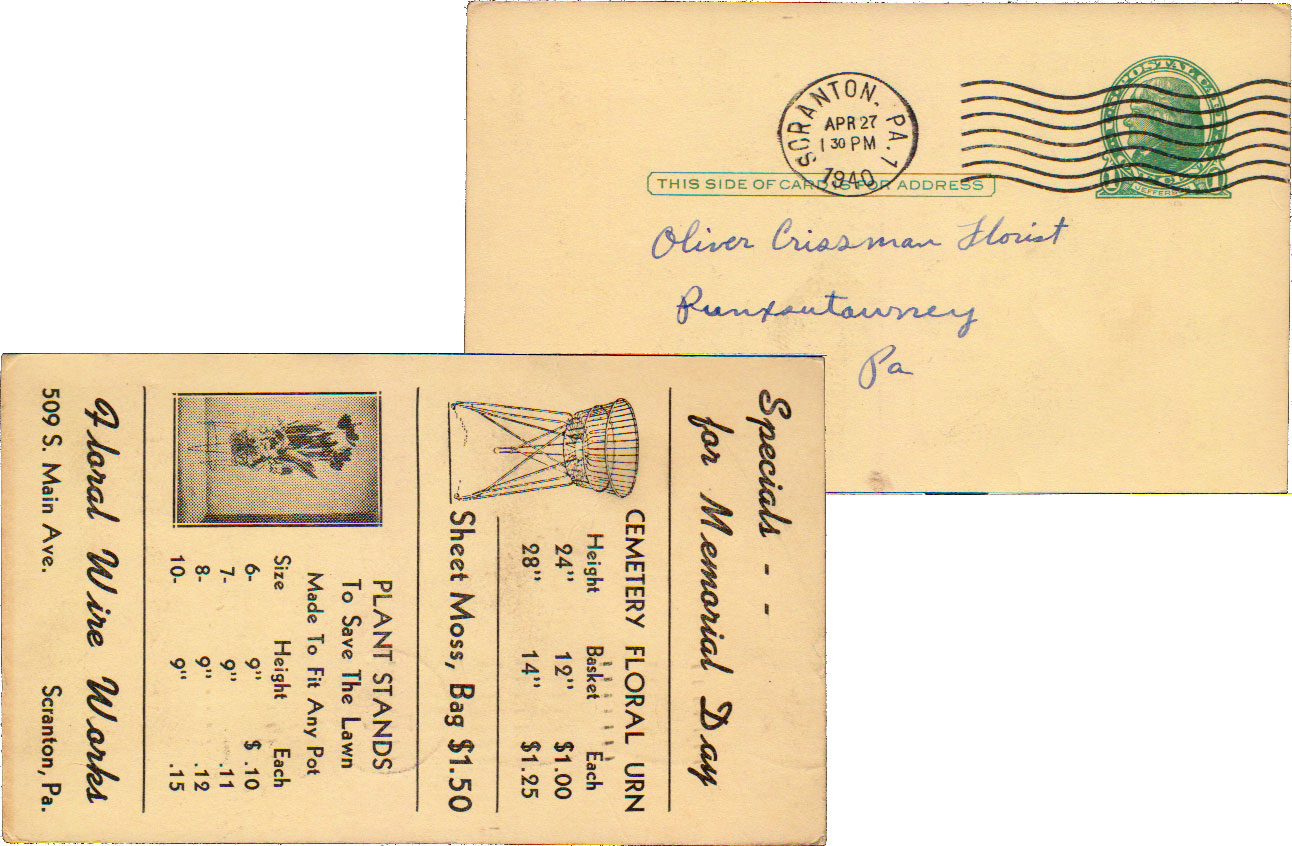 POSTAL CARD
SCRANTON, PA. 1
APR 27
1 30 PM
1940
THIS SIDE OF CARD IS FOR ADDRESS
JEFFERSON
Oliver Crissman Florist
Punxsutawney
Pa
Specials - -
for Memorial Day
CEMETERY FLORAL URN
Height Basket Each
24" 12" $1.00
28" 14" $1.25
Sheet Moss, Bag $1.50
PLANT STANDS
To Save The Lawn
Made To Fit Any Pot
Size Height Each
6- 9" $ .10
7- 9" .11
8- 9" .12
10- 9" .15
Floral Wire Works
509 S. Main Ave. Scranton, Pa.